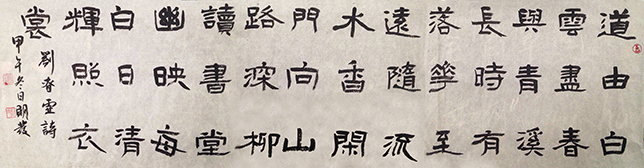 道由白
雲盡春
與青溪
長時有
落華至
遠隨流
水香閑
門向山
路深柳
讀書堂
幽映每
白日清
輝照衣
裳
劉眘虛詩
甲午冬日明發